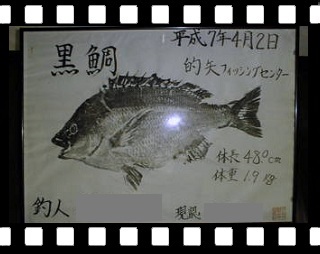 黒鯛
平成7年4月2日
的矢フィッシングセンター
体長 48.0cm
体重 1.9kg
釣人
現認